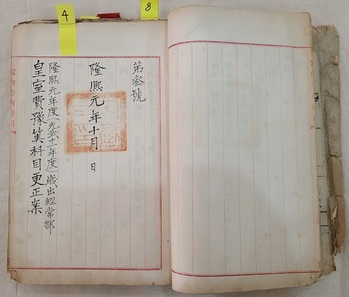 4
8
第參號
隆熙元年十月 日
隆熙元年度(光武十一年度)歲出經常部
皇室費豫算科目更正案